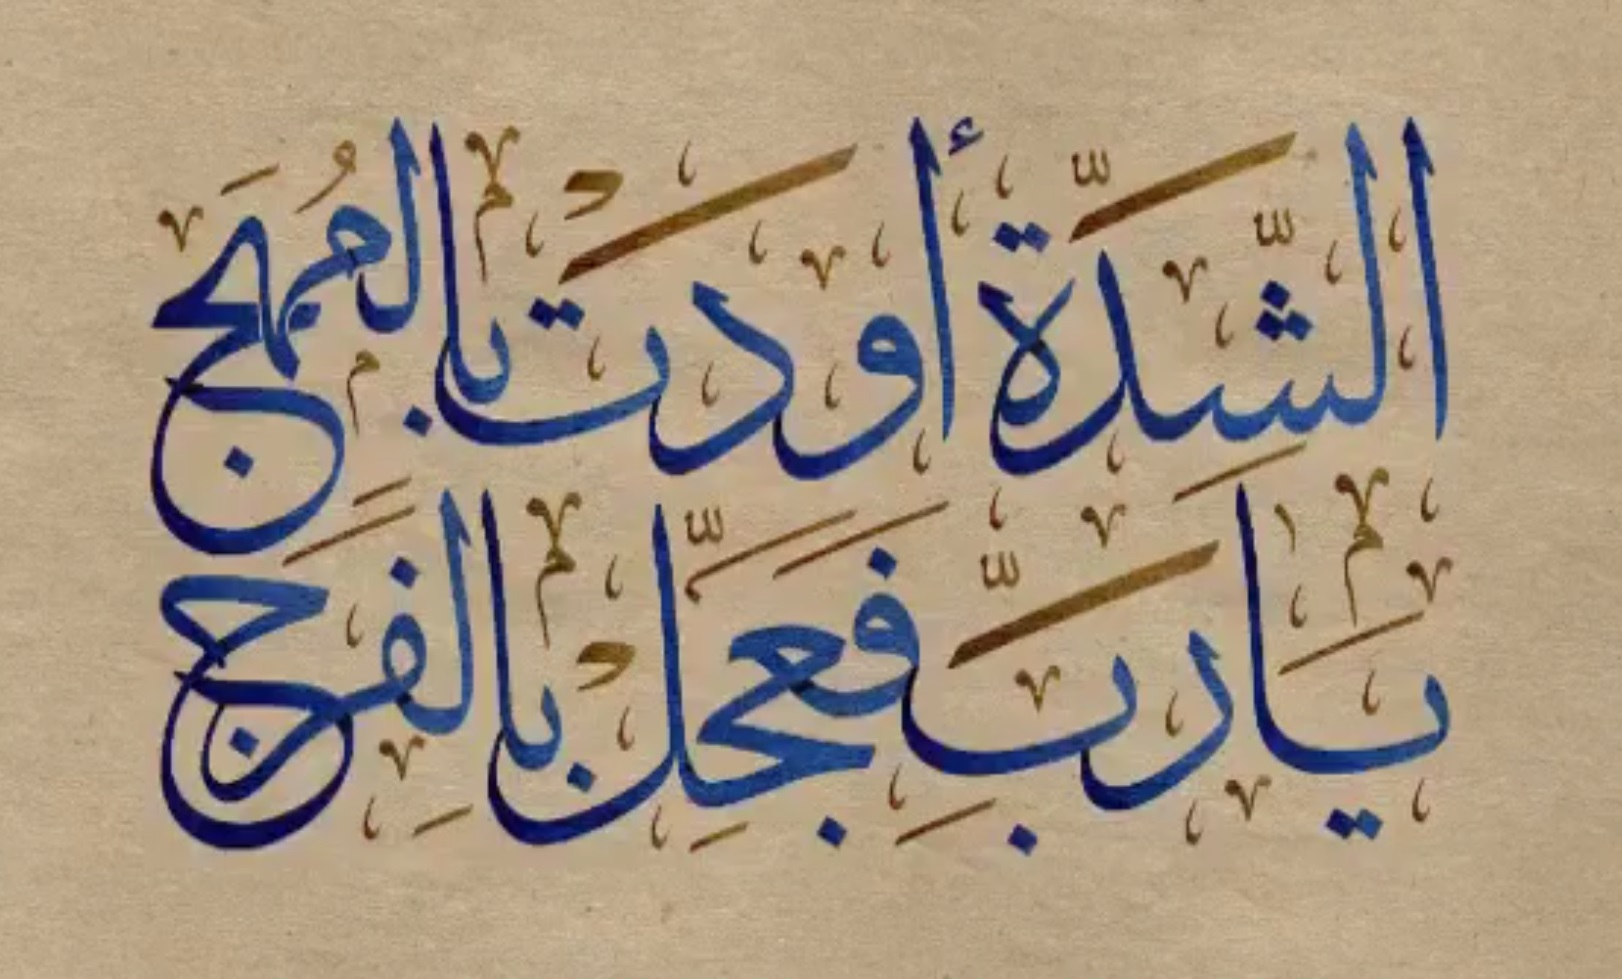 الشِّدَّةُ أَوْدَتْ بِالْمُهَجِ
يَا رَبِّ فَعَجِّلْ بِالْفَرَجِ